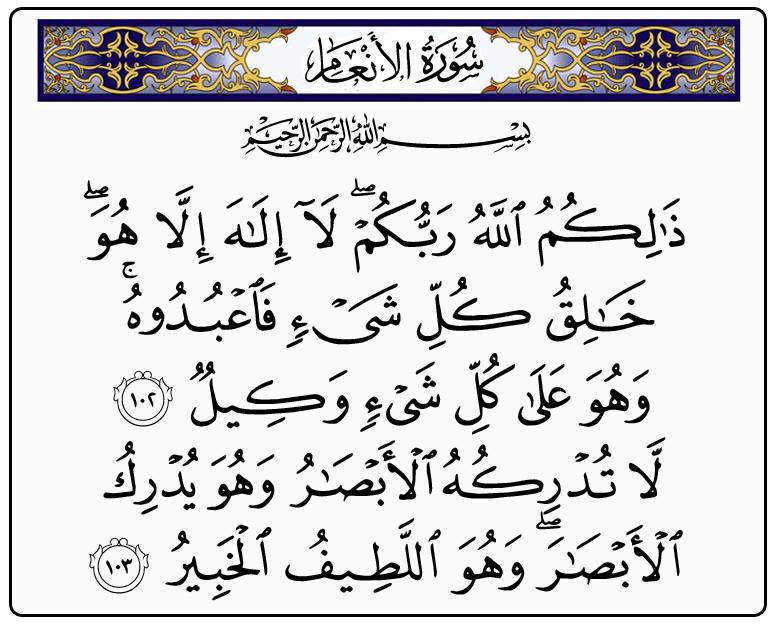 سُورَةُ الأَنْعَام
بِسْمِ اللَّهِ الرَّحْمَٰنِ الرَّحِيمِ
ذَٰلِكُمُ ٱللَّهُ رَبُّكُمْ ۖ لَآ إِلَٰهَ إِلَّا هُوَ ۖ
خَٰلِقُ كُلِّ شَىْءٍ فَٱعْبُدُوهُ ۚ
وَهُوَ عَلَىٰ كُلِّ شَىْءٍ وَكِيلٌ ١٠٢
لَّا تُدْرِكُهُ ٱلْأَبْصَٰرُ وَهُوَ يُدْرِكُ
ٱلْأَبْصَٰرَ ۖ وَهُوَ ٱللَّطِيفُ ٱلْخَبِيرُ ١٠٣